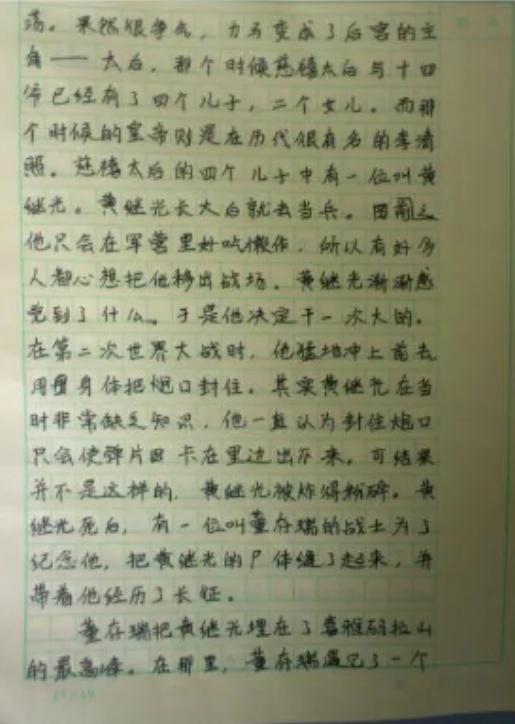 荡。果然很争气，力马变成了后宫的主
角——太后。那个时候慈禧太后与十四
爷已经有了四个儿子，二个女儿。而那
个时候的皇帝则是在历代很有名的李清
照。慈禧太后的四个儿子中有一位叫黄
继光。黄继光长大后就去当兵。因为
他只会在军营里好吃懒作，所以有好多
人都心想把他移出战场。黄继光渐渐感
觉到了什么。于是他决定干一次大的。
在第二次世界大战时，他猛地冲上前去
用身体把炮口封住。其实黄继光在当
时非常缺乏知识，他一直认为封住炮口
只会使弹片卡在里边出不来。可结果
并不是这样的，黄继光被炸得粉碎。黄
继光死后，有一位叫董存瑞的战士为了
纪念他，把黄继光的尸体缝了起来，并
带着他经历了长征。
董存瑞把黄继光埋在了喜雅码拉山
的最高峰。在那里，董存瑞遇见了一个